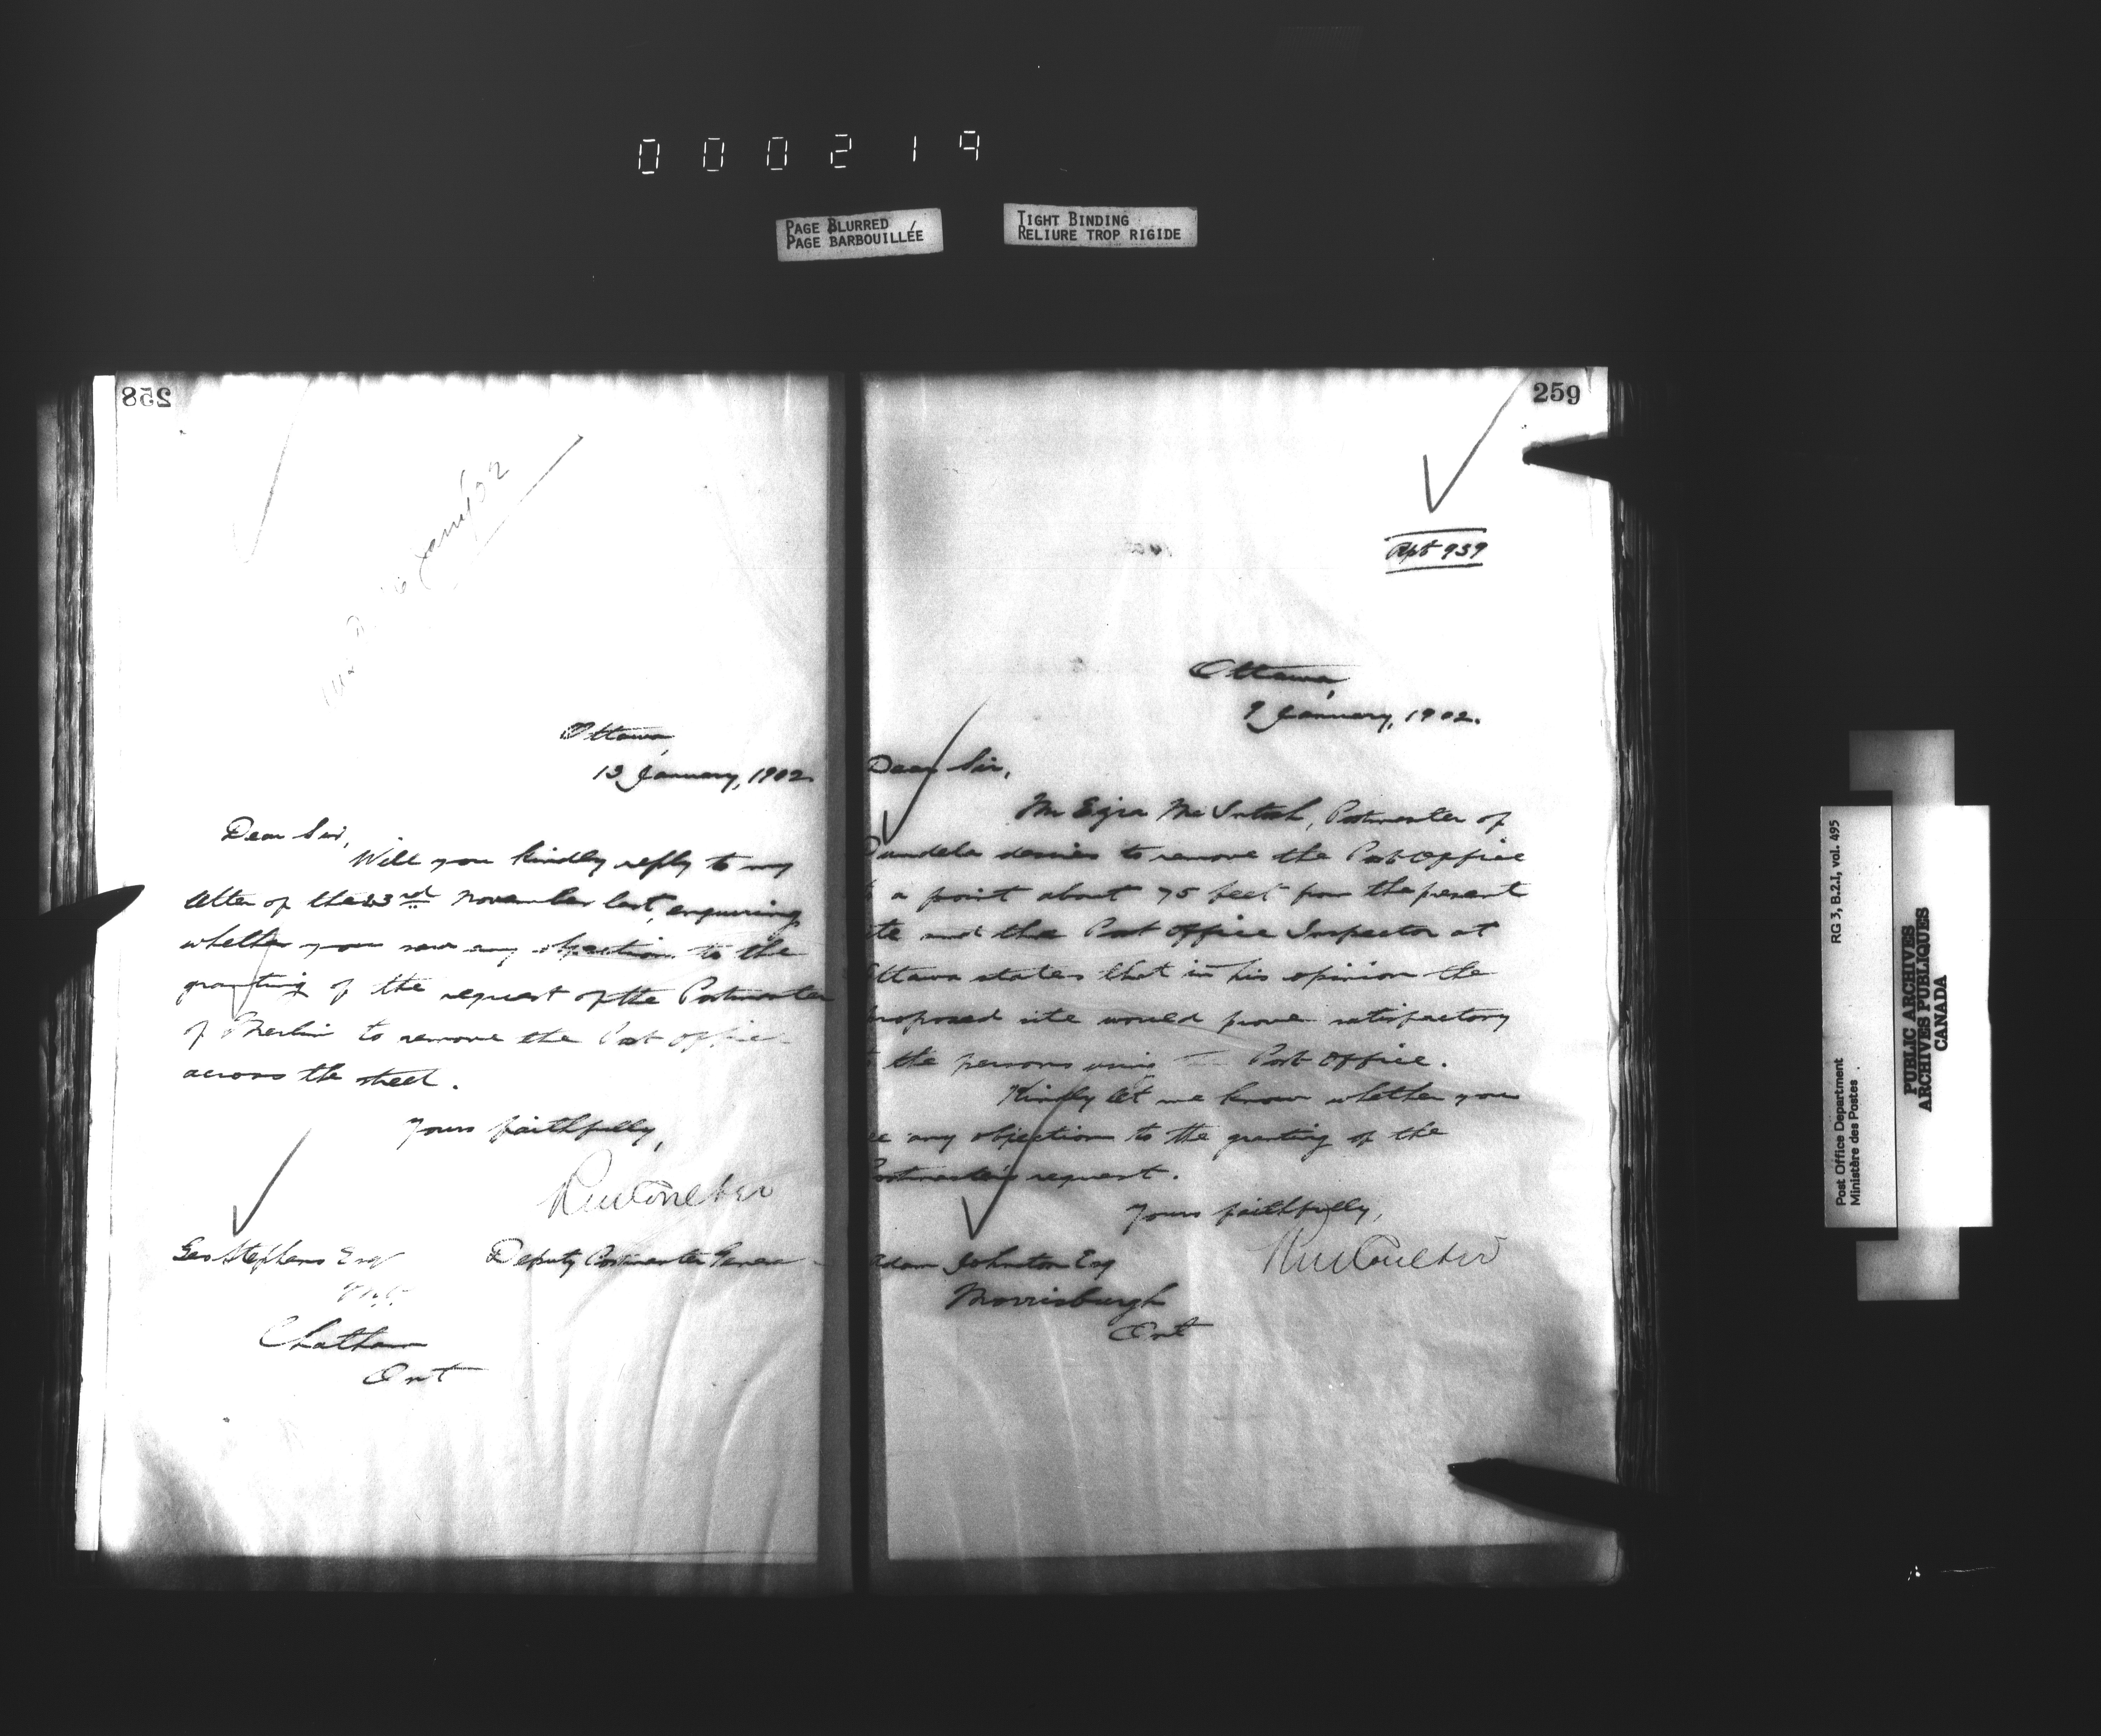 000219
PAGE BLURRED
PAGE BARBOUILLÉE
TIGHT BINDING
RELIURE TROP RIGIDE
258
Jany/02
Ottawa,
13 January, 1902
Dear Sir,
Will you kindly reply to my
letter of the 23rd November last, enquiring
whether you saw any objection to the
granting of the request of the Postmaster
of Merlin to remove the Post Office
across the street.
Yours faithfully,
RM Coulter
Deputy Postmaster General
Geo Stephens Esq
M.P.
Chatham
Ont
259
Rpt 939
Ottawa,
9 January, 1902.
Dear Sir,
Mr Ezra McIntosh, Postmaster of
Dundela desires to remove the Post Office
a point about 75 feet from the present
ite and the Post Office Inspector at
Ottawa states that in his opinion the
proposed site would prove satisfactory
the persons using Post Office.
Kindly let me know whether you
ee any objection to the granting of the
Postmaster's request.
Yours faithfully,
RM Coulter
Adam Johnston Esq
Morrisburgh
Ont
RG 3, B.2.I, vol. 495
Post Office Department
Ministère des Postes
PUBLIC ARCHIVES
ARCHIVES PUBLIQUES
CANADA